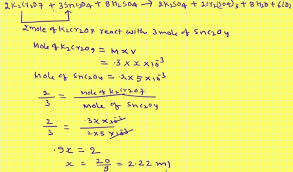 2K2Cr2O7 + 3SnC2O4 + 8H2SO4 → 2K2SO4 + 2Cr2(SO4)3 + 8H2O + 6CO2
2 mole of K2Cr2O7 react with 3 mole of SnC2O4
Mole of K2Cr2O7 = M x V
= .3 x x x10⁻³
Mole of SnC2O4 = .2 x 5 x 10⁻³
2/3 = mole of K2Cr2O7 / Mole of SnC2O4
2/3 = .3x x10⁻³ / .2x5 x10⁻³
.9x = 2
x = 20/9 = 2.22 ml